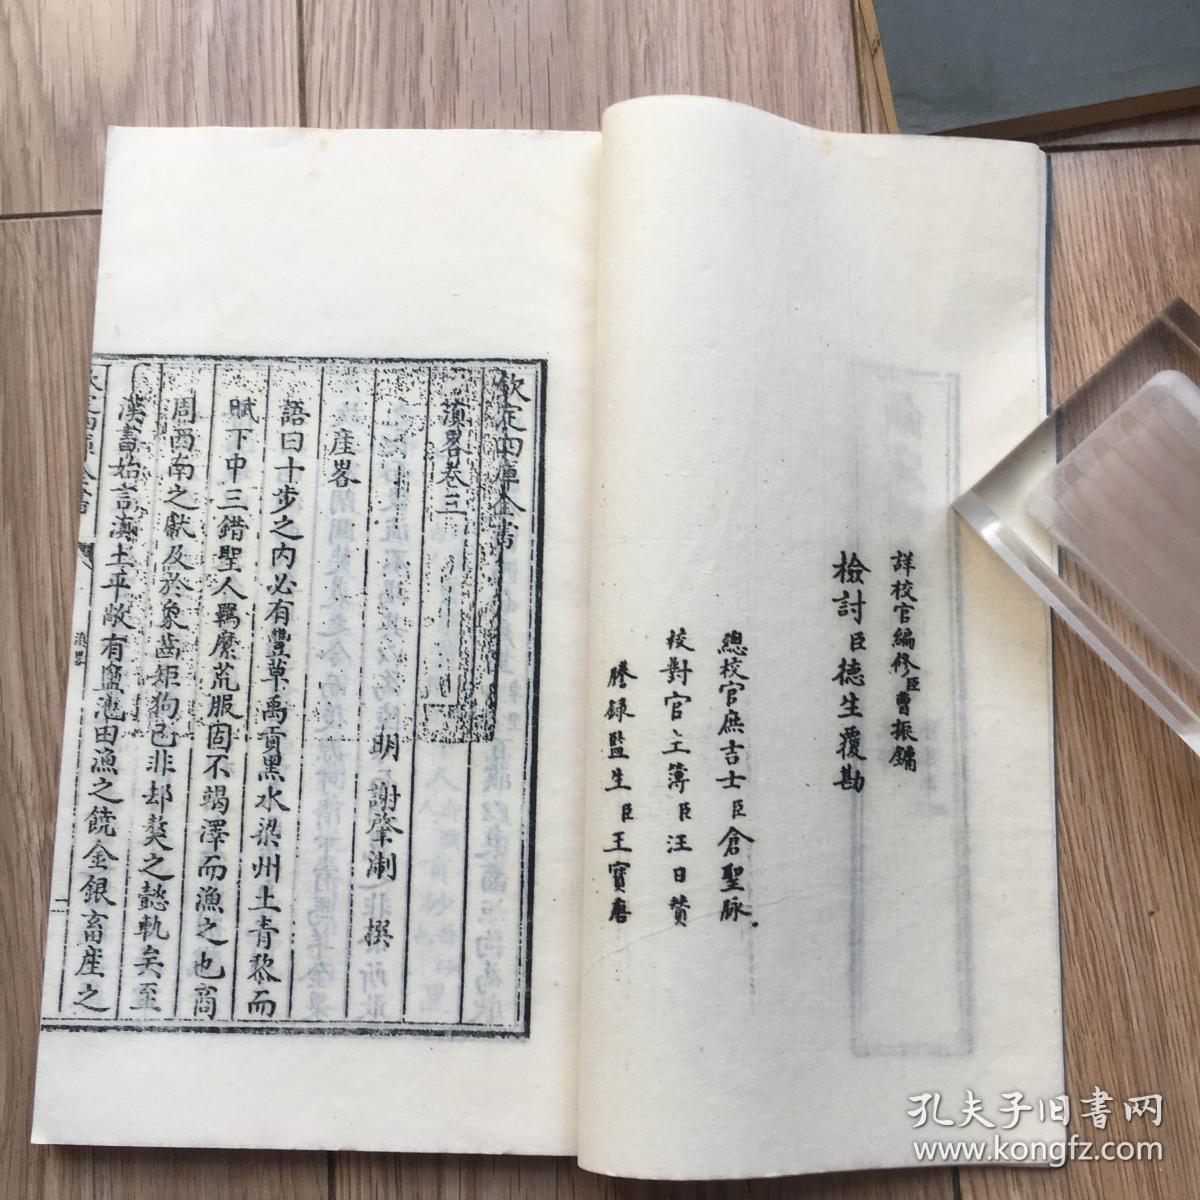 詳校官編修臣曹振鏞
檢討臣德生覆勘
總校官庶吉士臣倉聖脉
校對官主簿臣汪日贊
謄録監生臣王寶唐
欽定四庫全書
滇畧卷三
明 謝肇淛 撰
産畧
語曰十步之内必有豐草禹貢黑水梁州土青黎而
賦下中三錯聖人羈縻荒服固不竭澤而漁之也商
周西南之獻及於象齒矩狗已非却獒之懿軌矣至
漢書始言滇土平敞有鹽池田漁之饒金銀畜産之
欽定四庫全書
滇畧
孔夫子旧書网
www.kongfz.com